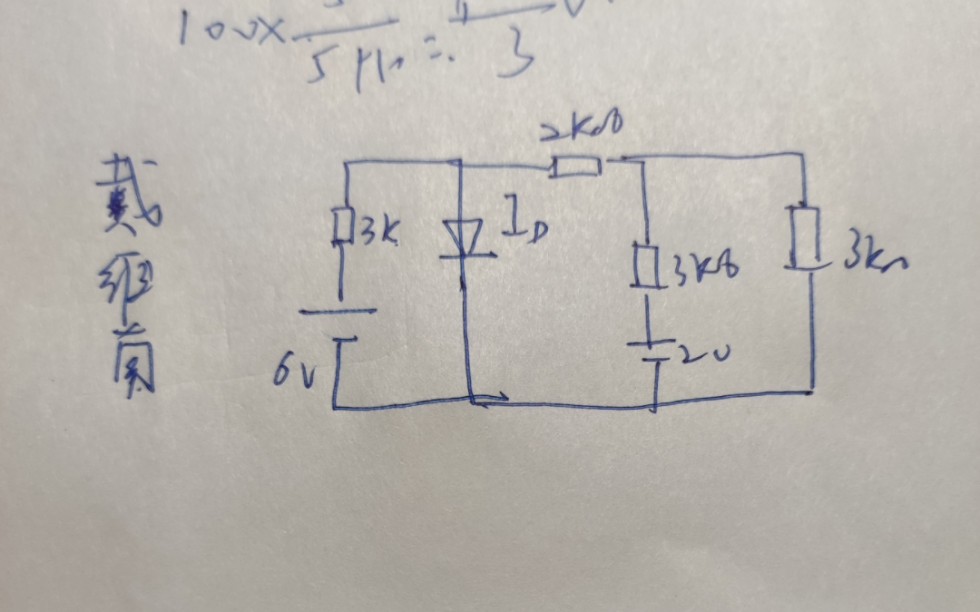 100×
5 = 3
戴维南
2kΩ
3K
I_D
3kΩ
3kΩ
6V
2V